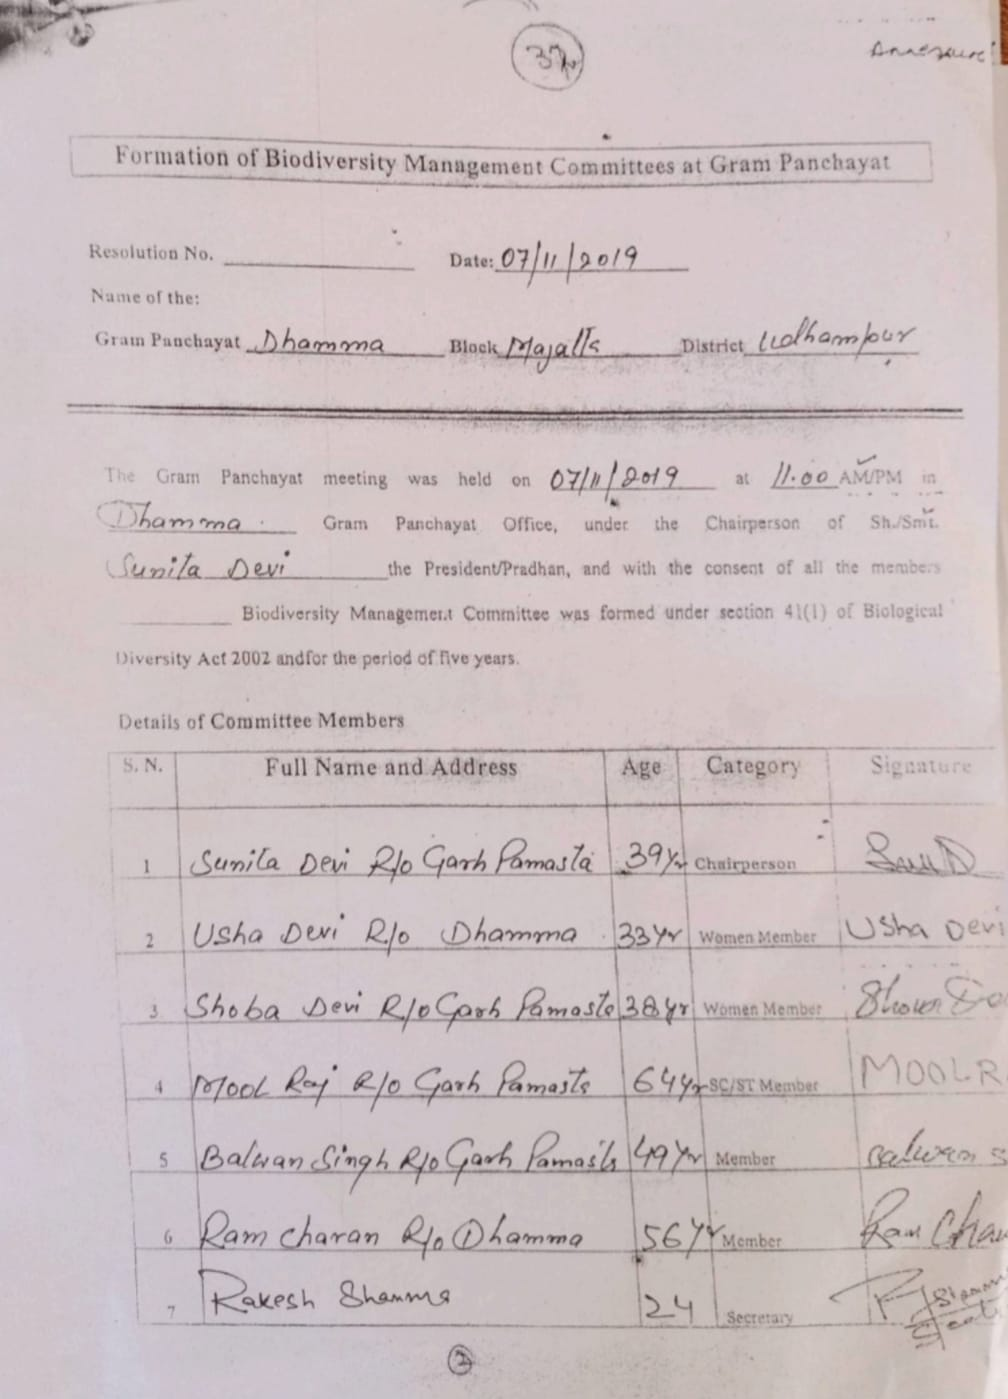 37
Annexure
Formation of Biodiversity Management Committees at Gram Panchayat
Resolution No. ____________ Date: 07/11/2019
Name of the:
Gram Panchayat Dhamma Block Majalta District Udhampur
The Gram Panchayat meeting was held on 07/11/2019 at 11.00 AM/PM in
Dhamma. Gram Panchayat Office, under the Chairperson of Sh./Smt.
Sunita Devi the President/Pradhan, and with the consent of all the members
____________ Biodiversity Management Committee was formed under section 41(1) of Biological
Diversity Act 2002 andfor the period of five years.
Details of Committee Members
S. N. Full Name and Address Age Category Signature
1 Sunita Devi R/o Garh Pamasta 39 Yr Chairperson
2 Usha Devi R/o Dhamma 33 Yr Women Member Usha Devi
3 Shoba Devi R/o Garh Pamasta 38 yr Women Member
4 Mool Raj R/o Garh Pamasta 64 Yr SC/ST Member MOOLR
5 Balwan Singh R/o Garh Pamasta 49 Yr Member Balwan S
6 Ram Charan R/o Dhamma 56 Yr Member Ram Cha
7 Rakesh Sharma 24 Secretary
2